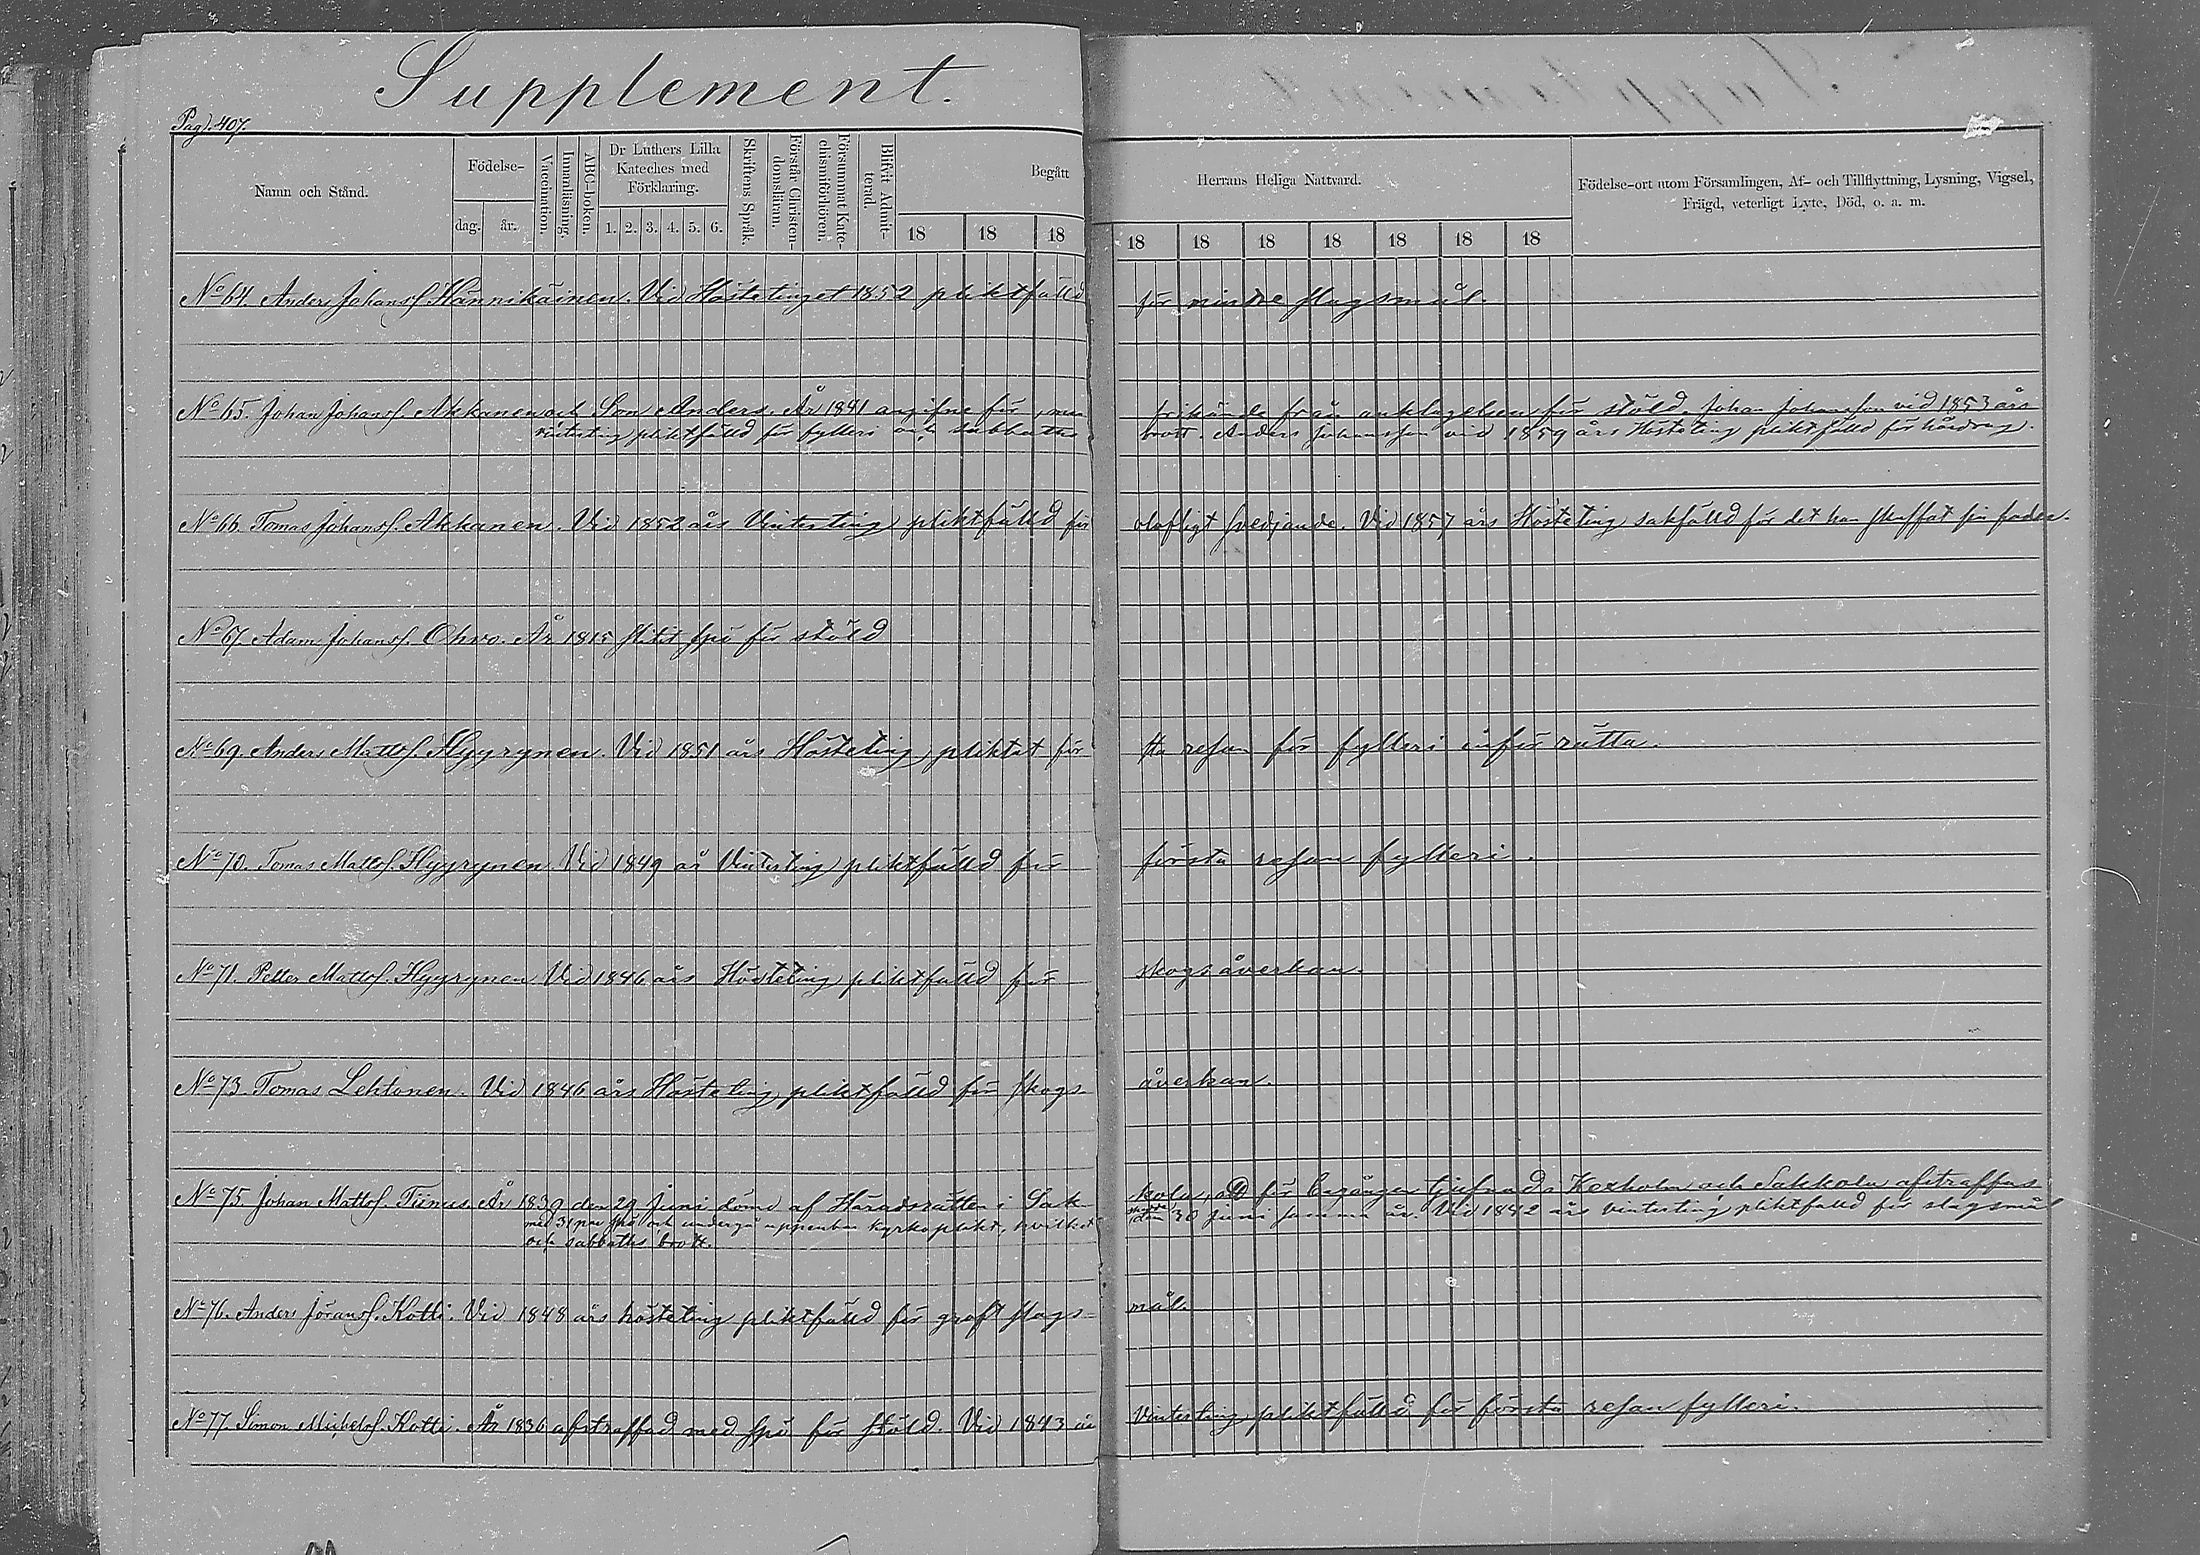 Supplement.
Pag). 407.
Namn och Stånd.
Födelse-
dag.
år.
Vaccination.
Innanläsning.
ABC-boken
Dr Luthers Lilla
Kateches med
Förklaring.
1. 2. 3. 4. 5. 6.
Skriftens Språk.
Förstår Christen-
domsläran.
Försummat Kate-
chismiförhören.
Blifvit Admit-
terad
Begått
Herrans Heliga Nattvard.
18 18 18 18 18 18 18 18 18 18
Födelse-ort utom Församlingen, Af- och Tillflyttning, Lysning, Vigsel,
Frägd, veterligt Lyte, Död, o. a. m.
No 64. Anders Johansf. Hännikäinen. Vid Hösttinget 1852 pliktfälld för mindre slagsmål.
No 65. Johan Johansf. Akkanen och Son Anders. År 1841 angifne för, men frikände från anklagelsen för stöld. Johan Johansson vid 1853 års
vinterting pliktfälld för fylleri och sabbaths brott. Anders Johansson vid 1859 års Hösteting pliktfälld för
No 66. Tomas Johansf. Akkanen. Vid 1852 års Vinterting pliktfälld för olofligt svedjande. Vid 1857 års Hösteting sakfälld för det han skuffat sin fader.
No 67. Adam Johansf. Ohvo. År 1815 slitit spö för stöld
No 69. Anders Mattsf. Hyyrynen. Vid 1851 års Hösteting pliktat för 1sta resan för fylleri inför rätta.
No 70. Tomas Mattsf. Hyyrynen. Vid 1849 år Vinterting pliktfälld för första resan fylleri.
No 71. Petter Mattsf. Hyyrynen. Vid 1846 års Hösteting pliktfälld för skogsåverkan.
No 73. Tomas Lehtonen. Vid 1846 års Hösteting pliktfälld för skogs- åverkan.
No 75. Johan Mattsf. Tiinus. År 1839 den 29 Juni dömd af Häradsrätten i Sak- kola, att för begången tjufnad i Kexholm och Sakkola afstraffas
med 31 par spö och undergå uppenbar kyrkoplikt, hvilket skedde den 30 Juni samma år. Vid 1842 års vinterting pliktfälld för slagsmål
och sabbaths brott.
No 76. Anders Jöransf. Kotti. Vid 1848 års hösteting pliktfälld för groft slags- mål.
No 77. Simon Michelsf. Kotti. År 1836 afstraffad med spö för stöld. Vid 1843 års Vinterting pliktfälld för första resan fylleri.